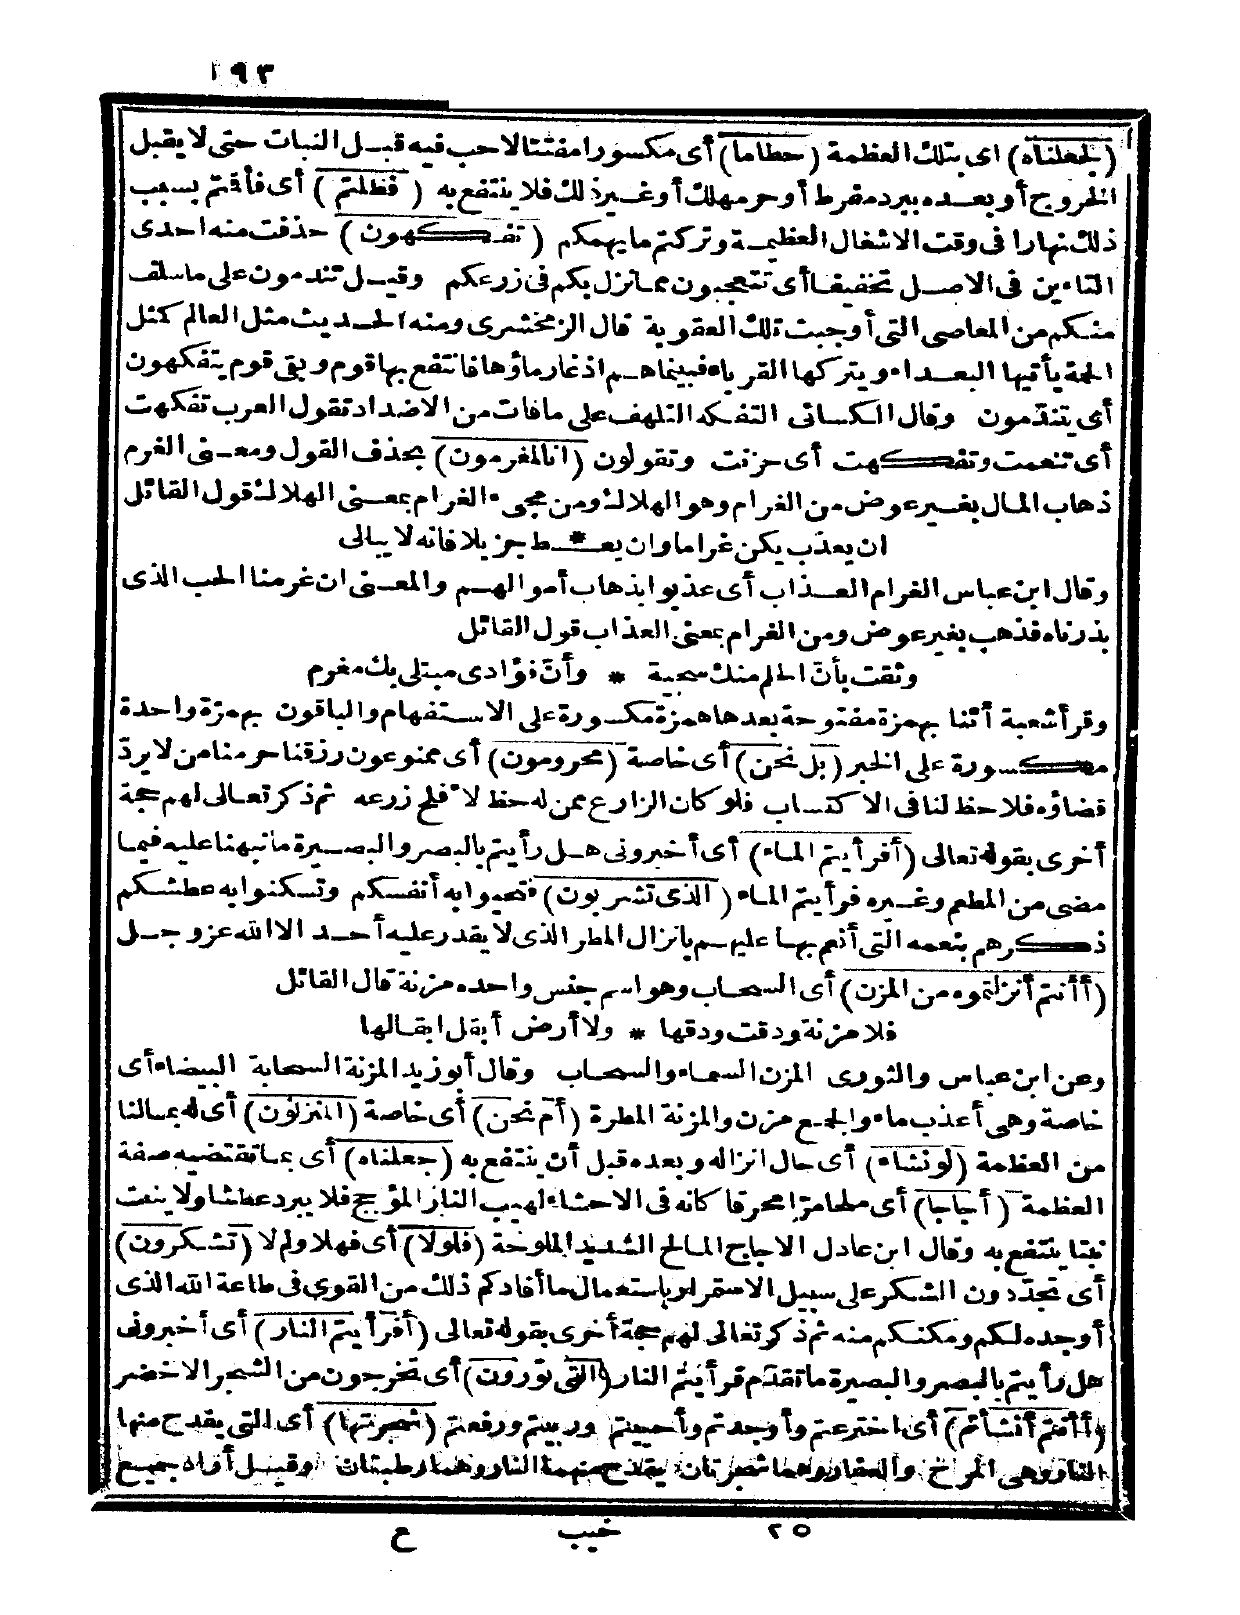 ١٩٣
(لجعلناه) اى بتلك العظمة (حطاما) أى مكسورا مفتتا لا حب فيه قبل النبات حتى لا يقبل
الخروج أو بعده ببرد مفرط أو حر مهلك أو غير ذلك فلا ينتفع به (فظلتم) أى فأقتم بسبب
ذلك نهارا فى وقت الاشغال العظيمة وتركتم ما يهمكم (تفكهون) حذفت منه احدى
التاءين فى الاصل تخفيفا أى تتعجبون مما نزل بكم فى زرعكم وقيل تندمون على ما سلف
منكم من المعاصى التى أوجبت تلك العقوبة قال الزمخشرى ومنه الحديث مثل العالم كمثل
الحمة يأتيها البعداء ويتركها القرباء فبينماهم اذ غار ماؤها فانتفع بها قوم وبقى قوم يتفكهون
أى يتندّمون وقال الكسائى التفكه التلهف على ما فات من الاضداد تقول العرب تفكهت
أى تنعمت وتفكهت أى حزنت وتقولون (انا لمغرمون) بحذف القول ومعنى الغرم
ذهاب المال بغير عوض من الغرام وهو الهلاك ومن مجىء الغرام بمعنى الهلاك قول القائل
ان يعذب يكن غراما وان يعـ * ـط جزيلا فانه لا يبالى
وقال ابن عباس الغرام العذاب أى عذبوا بذهاب أموالهم والمعنى ان غرمنا الحب الذى
بذرناه فذهب بغير عوض ومن الغرام بمعنى العذاب قول القائل
وثقت بأنّ الحلم منك سجية * وأنّ فؤادى مبتلى بك مغرم
وقرأ شعبة أئنا بهمزة مفتوحة بعدها همزة مكسورة على الاستفهام والباقون بهمزة واحدة
مكسورة على الخبر (بل نحن) أى خاصة (محرومون) أى ممنوعون رزقنا حرمنا من لا يردّ
قضاؤه فلا حظ لنا فى الاكتساب فلو كان الزارع ممن له حظ لأفلح زرعه ثم ذكر تعالى لهم حجة
أخرى بقوله تعالى (أفرأيتم الماء) أى أخبرونى هل رأيتم بالبصر والبصيرة ما نبهنا عليه فيما
مضى من المطعم وغيره فرأيتم الماء (الذى تشربون) فتحيوا به أنفسكم وتسكنوا به عطشكم
ذكرهم بنعمه التى أنعم بها عليهم بانزال المطر الذى لا يقدر عليه أحد الا الله عز وجل
(أأنتم أنزلتموه من المزن) أى السحاب وهو اسم جنس واحده مزنة قال القائل
فلا مزنة ودقت ودقها * ولا أرض أبقل ابقالها
وعن ابن عباس والثورى المزن السماء والسحاب وقال أبو زيد المزنة السحابة البيضاء أى
خاصة وهى أعذب ماء والجمع مزن والمزنة المطرة (أم نحن) أى خاصة (المنزلون) أى له بمالنا
من العظمة (لو نشاء) أى حال انزاله وبعده قبل أن ينتفع به (جعلناه) أى بما تقتضيه صفة
العظمة (أجاجا) أى ملحا مرّا محرقا كانه فى الاحشاء لهيب النار المؤجج فلا يبرد عطشا ولا ينبت
نبتا ينتفع به وقال ابن عادل الاجاج المالح الشديد الملوحة (فلولا) أى فهلا ولم لا (تشكرون)
أى تجدّدون الشكر على سبيل الاستمرار باستعمال ما أفادكم ذلك من القوى فى طاعة الله الذى
أوجده لكم ومكنكم منه ثم ذكر تعالى لهم حجة أخرى بقوله تعالى (أفرأيتم النار) أى أخبرونى
هل رأيتم بالبصر والبصيرة ما تقدّم فرأيتم النار (التى تورون) أى تخرجون من الشجر الاخضر
(أأنتم أنشأتم) أى اخترعتم وأوجدتم وأحييتم وربيتم ورفعتم (شجرتها) أى التى يقدح منها
النار وهى المرخ والعفار وهما شجرتان يقدح منهما النار وهما رطبتان وقيل أراد جميع
٢٥ خيب ع